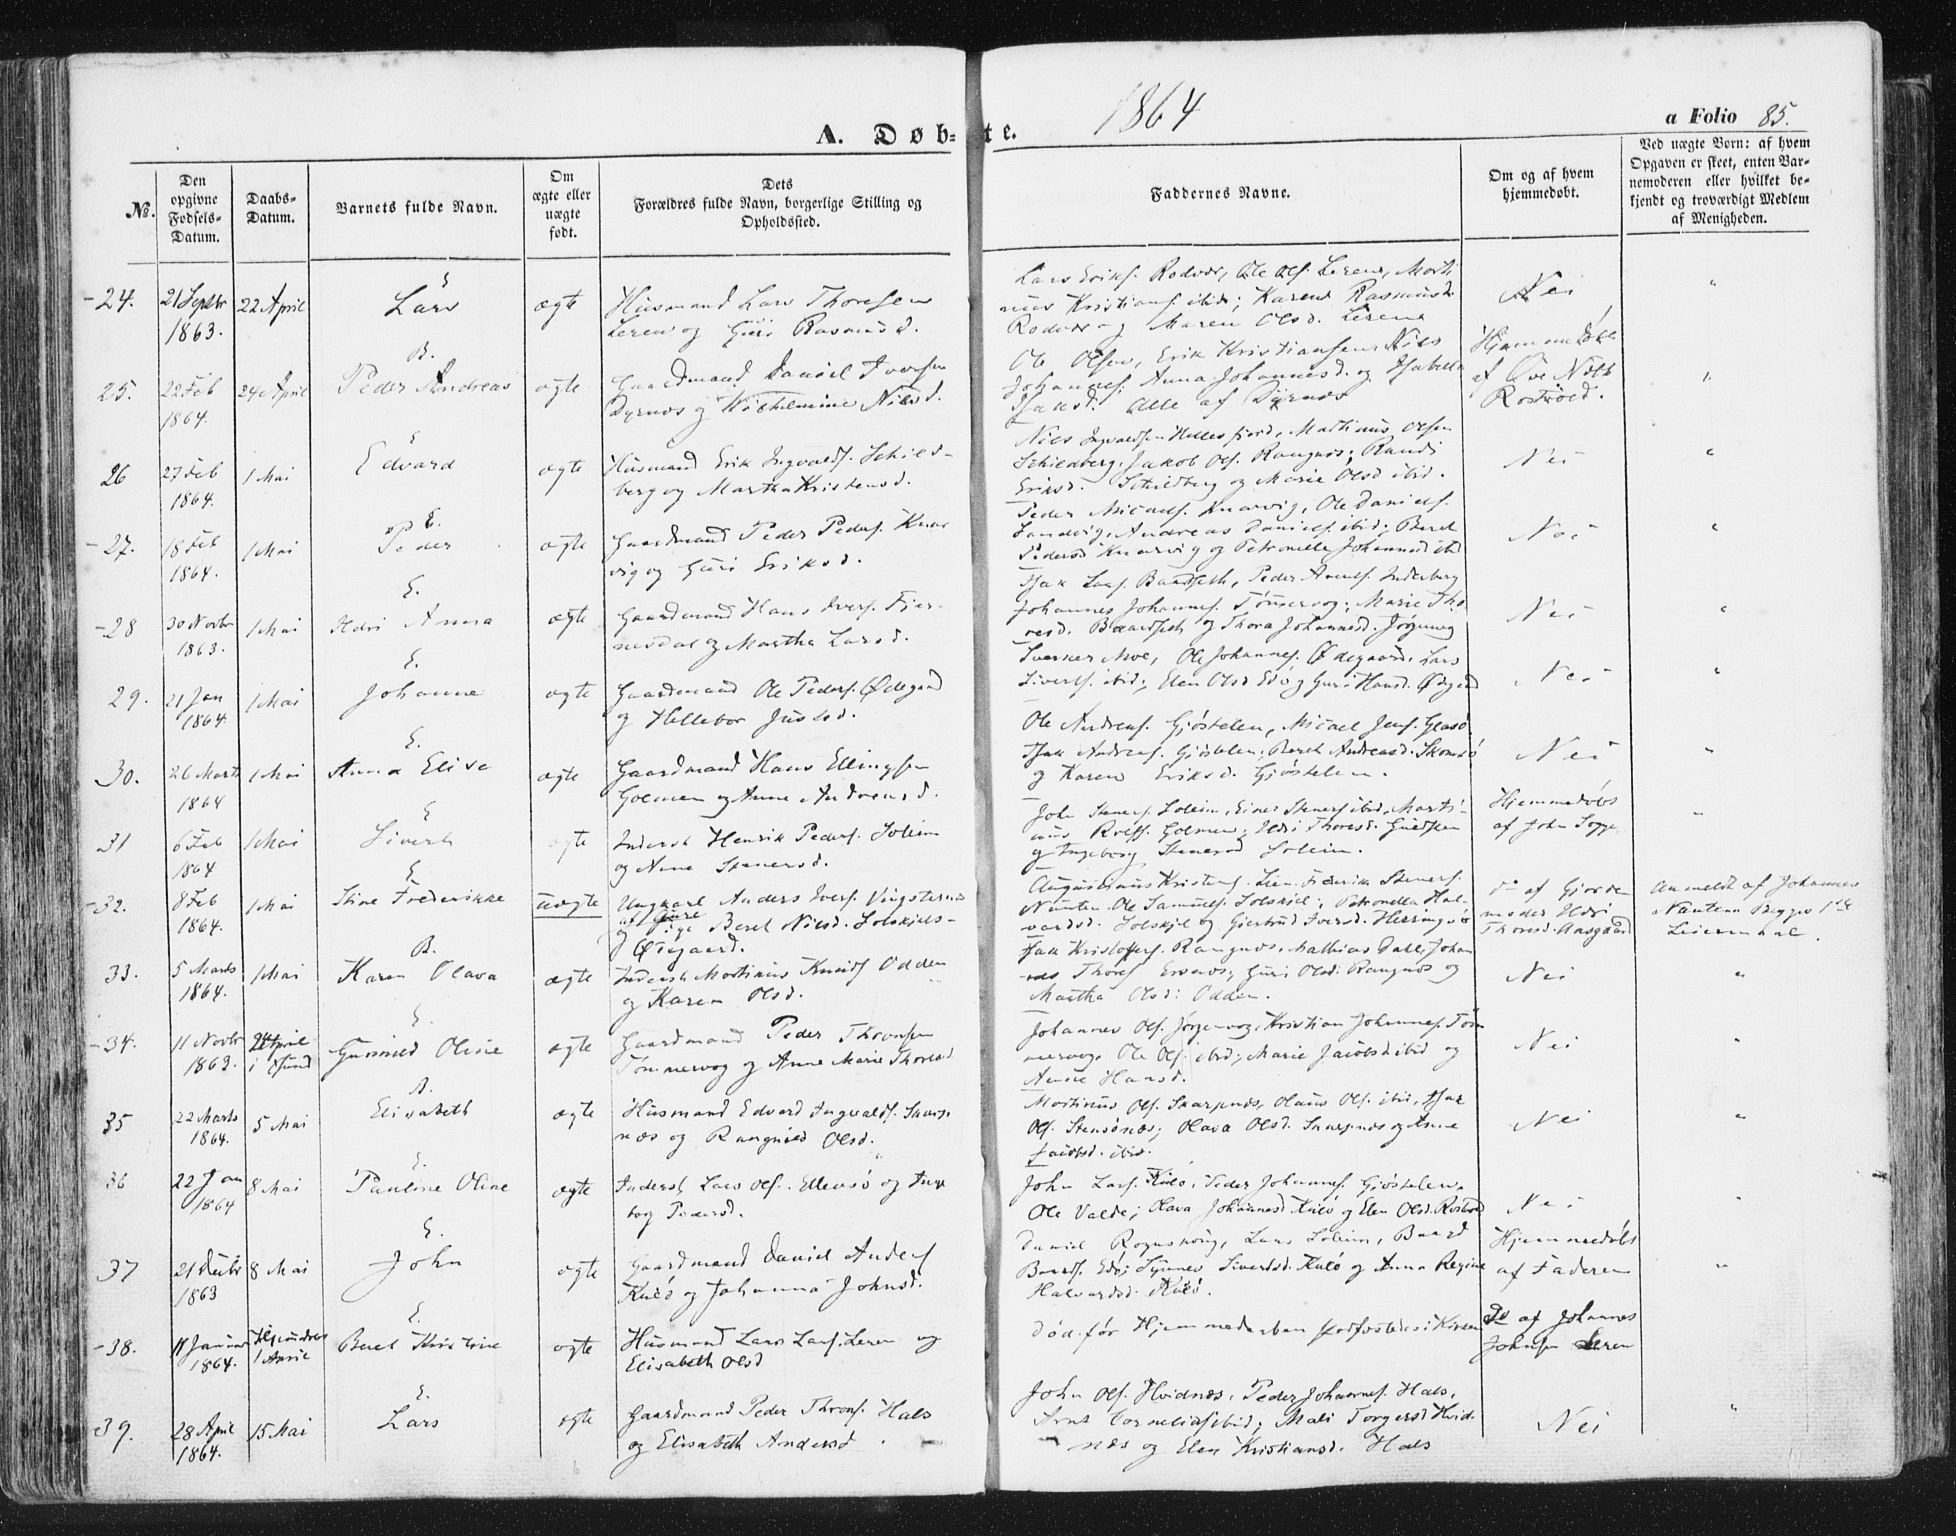 1864
A. Døb- te.
a Folio 85.
No.
Den opgivne Fødsels-Datum.
Daabs-Datum.
Barnets fulde Navn.
Om ægte eller uægte født.
Dets Forældres fulde Navn, borgerlige Stilling og Opholdssted.
Faddernes Navne.
Om og af hvem hjemmedøbt.
Ved uægte Børn: af hvem Opgaven er skeet, enten Barnemoderen eller hvilket bekjendt og troværdigt Medlem af Menigheden.
24. 21 Septbr 1863. 22 April E Lars ægte
Husmand Lars Thoresen
Leren og Guri Rasmusd.
Lars Eriks. Rodvær, Ole Ols. Leren, Marti
nus Kristians. ibid; Karen Rasmusd.
Rodvær og Maren Olsd. Leren
Nei
25. 22 Feb 1864. 24 April B. Peder Andreas ægte
Gaardmand Daniel Iversen
Dyrnæs og Nilsd.
Ole Olsen, Erik Kristiansen, Nils
Johannes. Anna Johannesd. og Isabella
Isaksd. alle af Dyrnæs
Hjemmedøbt
af Ove Nils
Rostvold.
26 27 Feb 1864. 1 Mai E Edvard ægte
Husmand Erik Ingvalds. Schild-
berg og Martha Kristensd.
Nils Ingvaldsen Hellesfjord, Martinus Olsen
Schildberg, Jakob Ols. Rangnæs; Randi
Eriksd. Schildberg og Marie Olsd ibid.
Nei
27. 18 Feb 1864. 1 Mai E. Peder ægte
Gaardmand Peder Peders. Knar
vig og Guri Eriksd.
Peder Micaels. Knarvig, Ole Daniels.
Sandvig, Andreas Daniels. ibid; Beret
Pedersd Knarvig og Petronelle Johannesd ibid
Nei
28 30 Novbr 1863. 1 Mai E. Ildri Anna ægte
Gaardmand Hans Ivers. Fjer-
nesdal og Martha Larsd.
Isak Lars. Baardseth, Peder Arents. Inderberg
Johannes Johannes. Tømmervog; Marie Tho
resd. Baardseth og Thora Johannesd. Jørgenvog
Nei
29. 21 Jan 1864. 1 Mai E. Johanne ægte
Gaardmand Ole Peders. Ødegaard
og Hellebor Justsd.
Sverker Moe, Ole Johannes. Ødegaard, Lars
Siverts. ibid; Elen Olsd Edø og Guri Hansd. Ødegaard
Nei
30. 26 Marts 1864 1 Mai E. Anna Elise ægte
Gaardmand Hans Ellingsen
Golmen og Anne Andreasd.
Ole Andreas. Gjøstelen, Micael Jens. Glasø
Isak Andreas. Gjøstelen; Beret Andreasd. Skomsø
og Karen Eriksd. Gjøstelen.
Nei
31 6 Feb 1864 1 Mai E Sivert ægte
Inderst Henrik Peders. Soleim
og Anne Stenersd.
John Steners. Soleim, Einer Steners ibid, Marti-
nus Rolfs. Golmen; Ildri Thoresd.
og Ingeborg Stenersd Soleim.
Hjemmedøbt
af John Sogge
32. 8 Feb 1864. 1 Mai E Stine Frederikke uægte
Ungkarl Anders Ivers. Vingsternes
og Pige Beret Nilsd. Solskjels-
Ødegaard.
Augustinus Kristens. Lien, Frederik Steners.
Nunten, Ole Samuels. Solskjel; Petronelle Hal-
vardsd. Solskjel og Gjertrud Iversd. Herringsø
Do af Gjorde
moder Ildri
Thoresd. Aasgaard
Anmeldt af Johannes
Nunten Begges 1ste
Leiermaal.
33. 5 Marts 1864. 1 Mai B. Karen Olava ægte
Inderst Martinus Knuds Odden
og Karen Olsd.
Isak Kristoffers. Rangnæs, Mathias Dall, Johan
nes Thores Ersnæs; Guri Olsd: Rangnæs og
Martha Olsd: Odden.
Nei
34. 11 Novbr 1863. 24 April i E. Gunnild Oline ægte
Gaardmand Peder Thronsen
Tømmervog og Anne Marie Thoresd
Johannes Ols. Jørgenvog, Kristian Johannes. Tøm
mervog, Ole Ols. ibid; Marie Jacobsd. ibid og
Anne Hansd.
Nei
35 22 Marts 1864. 5 Mai B. Elisabeth ægte
Husmand Edvard Ingvalds. Skarp
næs og Rangnild Olsd.
Martinus Ols. Skarpnæs, Olaus Ols. ibid, Isak
Ols. Stensønæs; Olava Olsd. Skarpnæs og Anne
Jacobsd. ibid.
Nei
36 22 Jan 1864 8 Mai E. Pauline Oline ægte
Inderst Lars Ols. Ellensø og Inge
borg Pedersd.
John Lars. Kulø, Peder Johannes. Gjøstelen,
Ole Valde; Olava Johannesd Kulø og Elen Olsd. Rostvold
Nei
37 21 Decbr 1863 8 Mai E. John ægte
Gaardmand Daniel Anders
Kulø og Johanna Johnsd.
Daniel Rognskoug, Lars Soleim, Baard
Baards. Edø; Synnev Sivertsd. Kulø og Anna Regine
Halvardsd. Kulø.
Hjemmedøbt
af Faderen
38. 11 Januar 1864. 1 April E. Beret Kirstine ægte
Husmand Lars Lars. Leren og
Elisabeth Olsd
Død før Hjemmedaaben i Kirken
Do af Johannes
Johnsen Leren
39. 28 April 1864. 15 Mai E. Lars ægte
Gaardmand Peder Throns. Hals
og Elisabeth Andersd.
John Ols. Hvidnæs, Peder Johannes. Hals,
Arnt Cornelius ibid; Mali Torgersd Hvid-
næs og Elen Kristiansd. Hals
Nei